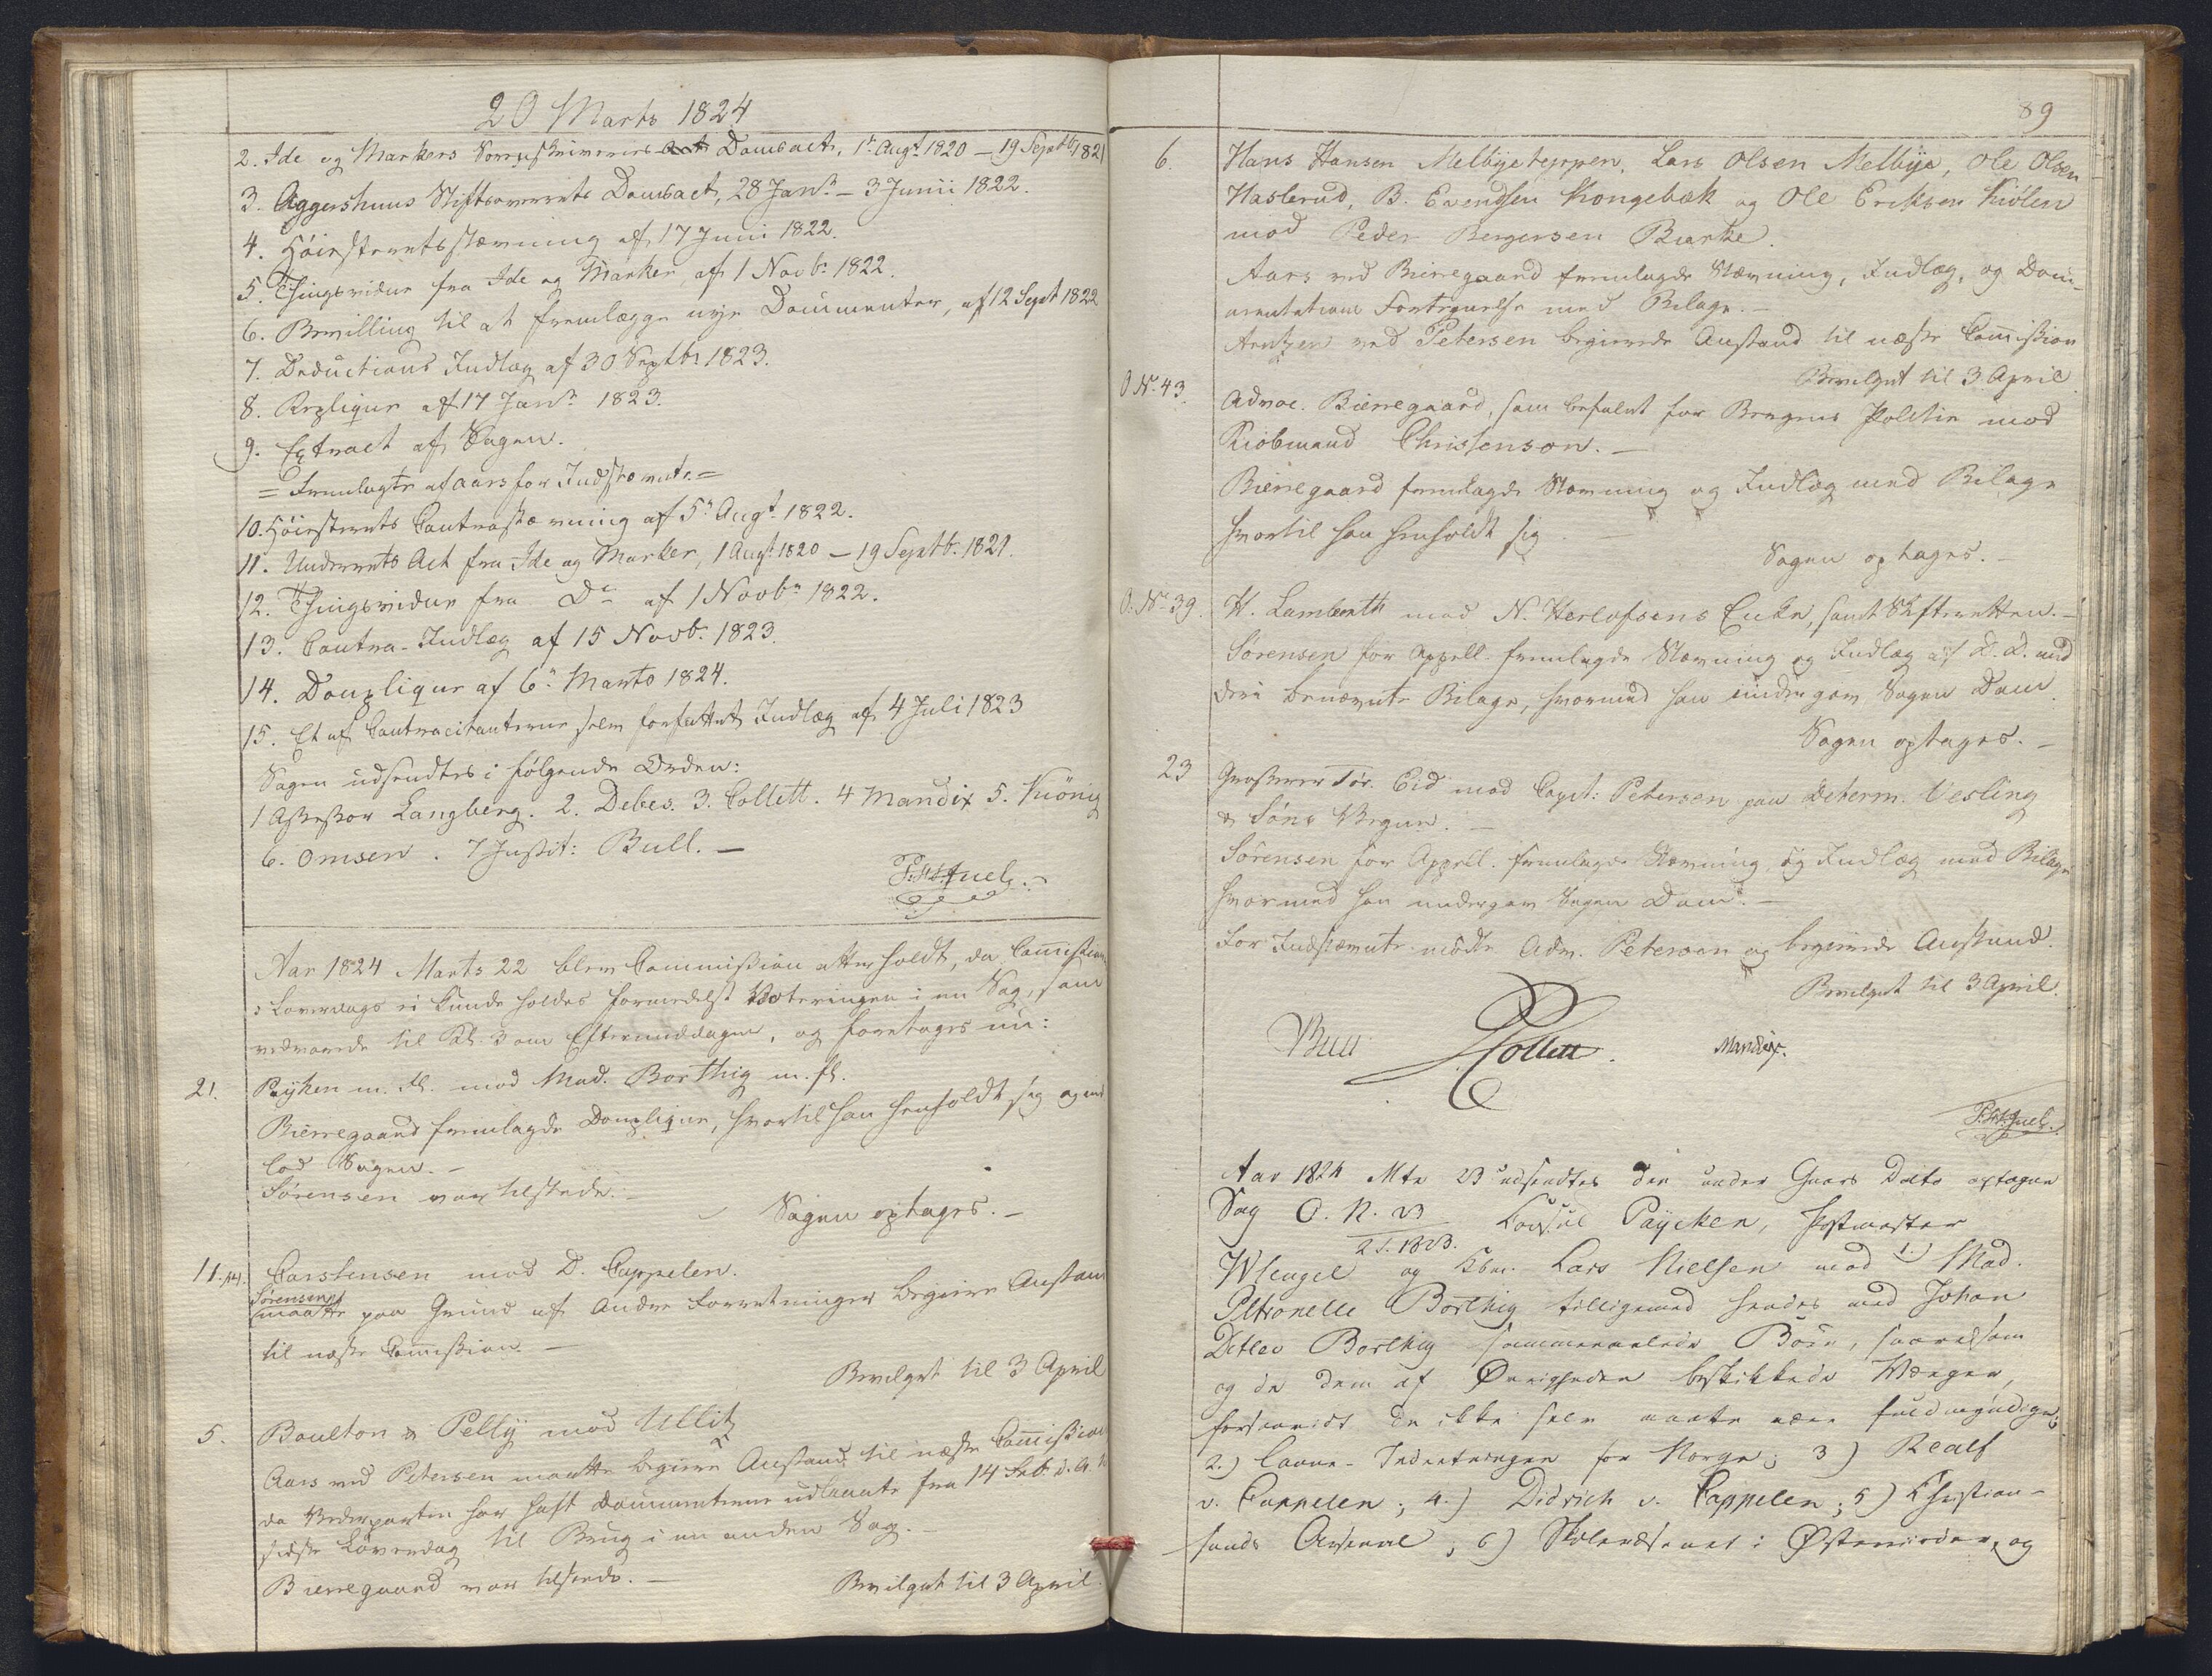 20 Marts 1824
2. Ide og Markers Sorenskriveries Act Domsact, 1 Augt 1820 – 19 Septb 1821
3. Aggershuus Stiftsoverrets Domsact, 28 Janr – 3 Junii 1822.
4. Höiesteretsstævning af 17 Junii 1822.
5. Thingsvidne fra Ide og Marker af 1 Novbr 1822.
6. Bevilling til at fremlægge nye Documenter, af 12 Sept 1822
7. Deductions Indlæg af 30 Septbr 1823.
8. Replique af 17 Janr 1823.
9. Extract af Sagen.
= Fremlagte af Aars for Indstævnte. =
10. Höiesterets Contrastævning af 5 Augt 1822.
11. Underrets Act fra Ide og Marker, 1 Augt 1820 – 19 Septbr 1821.
12. Thingsvidne fra Do af 1 Novbr 1822.
13. Contra-Indlæg af 15 Novbr 1823.
14. Douplique af 6 Marts 1824.
15. Et af Contracitanterne selv forfattet Indlæg af 4 Juli 1823
Sagen udsendtes i følgende Orden:
1 Assessor Langberg. 2. Debes. 3. Collett. 4 Mandix 5. Knönig
6. Omsen. 7 Justit: Bull. –
Juel
Aar 1824 Marts 22 blev Commission atter holdt, da Commission
Løverdags ei kunde holdes formedelst Voteringen i en Sag, som
vedvarede til Kl. 3 om Eftermiddagen, og foretages nu:
21. Paÿken m. fl. mod Mad. Borthig m. fl.
Bierregaard fremlagde Douplique, hvortil han henholdt sig og ind
lod Sagen. –
Sörensen var tilstede. –
Sagen optages. –
11. Carstensen mod D. Cappelen.
Sörensen
maatte paa Grund af andre Forretninger begiere Anstand
til næste Commission. –
Bevilget til 3 April
5. Boulton & Pelly mod Ullitz
Aars ved Petersen maatte begiere Anstand til næste Commission
da Vederparten har havt Documenterne udlaante fra 14 Feb. d. A. til
sidste Löverdag til Brug i en anden Sag. –
Bierregaard var tilstede. –
Bevilget til 3 April.
89
6. Hans Hansen Melbyeteppen, Lars Olsen Melbÿe, Ole Olsen
Haslerud, B. Evendsen Kongebæk og Ole Eriksen Kiölen
mod Peder Bergersen Burke.
Aars ved Bierregaard fremlagde Stævning, Indlæg, og Docu-
mentations Fortegnelse med Bilage. –
Arntzen ved Petersen begierede Anstand til næste Commission
Bevilget til 3 April
O. No. 43. Advoc. Bierregaard, som befalet for Bragnes Politie mod
Kiöbmand Christenson. –
Bierregaard fremlagde Stævning og Indlæg med Bilage
hvortil han henholdt sig. –
Sagen optages. –
O. No. 39. H. Lamberth mod N. Herlofsens Enke, samt Skifteretten. –
Sörensen for Appell. fremlagde Stævning og Indlæg af D. D. med
deri benævnte Bilage, hvormed han undergav Sagen Dom.
Sagen optages. –
23 Grosserer Tör. Eid mod Capt: Petersen paa Determ. Vesling
& Söns Vegne. –
Sörensen for Appell. fremlagde Stævning og Indlæg med Bilage
hvormed han undergav Sagen Dom. –
For Indstævnte mödte Adv. Petersen og begierede Anstand.
Bevilget til 3 April.
Bull Collett. Mandix.
Juel.
Aar 1824 Mts 23 udsendtes den under Gaars Dato optagne
Sag O. N. 23
2 S. 1823. Consul Paÿcken, Postmester
Wleugel og Kbm. Lars Nielsen mod 1.) Mad.
Petronelle Borthig tilligemed hendes med Johan
Detlev Borthig sammenavlede Börn, saavelsom
og de dem af Övrigheden beskikkede Værger,
forsaavidt de ikke selv maatte være fuldmÿndige;
2.) Laane-Indretningen for Norge; 3) Realf
v. Cappelen; 4.) Didrich v. Cappelen; 5) Christian-
sands Arsenal, 6) Skolevæsenet i Østerriisöer, og